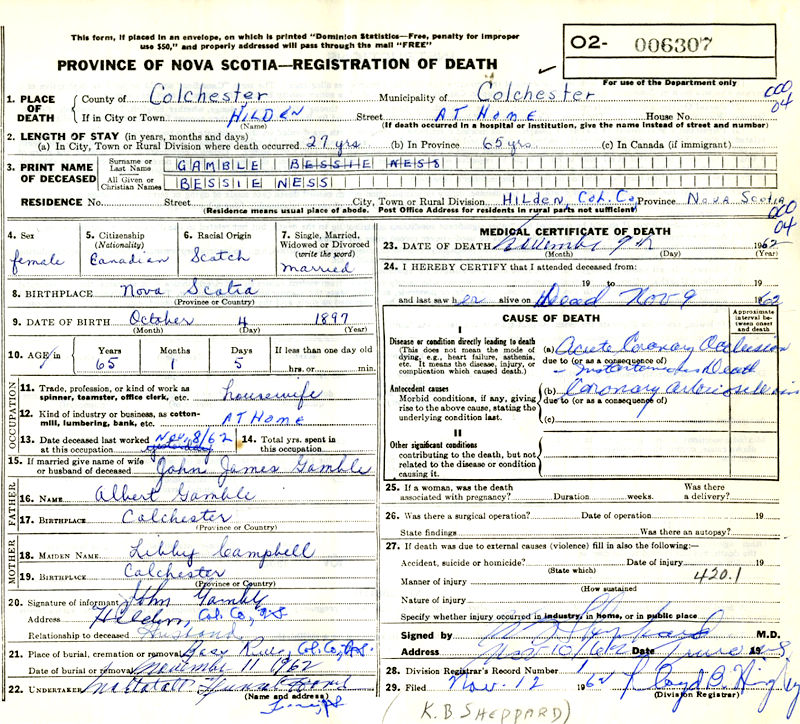 This form, if placed in an envelope, on which is printed "Dominion Statistics—Free, penalty for improper
use $50," and properly addressed will pass through the mail "FREE"
PROVINCE OF NOVA SCOTIA—REGISTRATION OF DEATH
02- 006307
For use of the Department only
1. PLACE OF DEATH
County of Colchester Municipality of Colchester
000
04
If in City or Town HILDEN (Name) Street AT HOME House No.
(If death occurred in a hospital or institution, give the name instead of street and number)
2. LENGTH OF STAY (in years, months and days)
(a) In City, Town or Rural Division where death occurred 27 yrs (b) In Province 65 yrs (c) In Canada (if immigrant)
3. PRINT NAME OF DECEASED
Surname or Last Name GAMBLE BESSIE NESS
All Given or Christian Names BESSIE NESS
RESIDENCE No. Street City, Town or Rural Division HILDEN, Col. Co, Province NOVA SCOTIA
(Residence means usual place of abode. Post Office Address for residents in rural parts not sufficient)
000
04
4. Sex female
5. Citizenship (Nationality) Canadian
6. Racial Origin Scotch
7. Single, Married, Widowed or Divorced (write the word) married
8. BIRTHPLACE Nova Scotia
(Province or Country)
9. DATE OF BIRTH October 4 1897
(Month) (Day) (Year)
10. AGE Years 65 Months 1 Days 5 If less than one day old hrs. or min.
OCCUPATION
11. Trade, profession, or kind of work as spinner, teamster, office clerk, etc. housewife
12. Kind of industry or business, as cotton-mill, lumbering, bank, etc. AT HOME
13. Date deceased last worked at this occupation Nov. 8/62 yesterday
14. Total yrs. spent in this occupation
15. If married give name of wife or husband of deceased John James Gamble
FATHER
16. NAME Albert Gamble
17. BIRTHPLACE Colchester
(Province or Country)
MOTHER
18. MAIDEN NAME Libby Campbell
19. BIRTHPLACE Colchester
(Province or Country)
20. Signature of informant John Gamble
Address Hilden, Col. Co, N.S
Relationship to deceased Husband
21. Place of burial, cremation or removal Col. Co., N.S.
Date of burial or removal November 11 1962
22. UNDERTAKER Funeral Home
(Name and address)
MEDICAL CERTIFICATE OF DEATH
23. DATE OF DEATH November 9th 1962
(Month) (Day) (Year)
24. I HEREBY CERTIFY that I attended deceased from:
19 to 19
and last saw her alive on Dead Nov 9 1962
CAUSE OF DEATH
Approximate interval between onset and death
I
Disease or condition directly leading to death
(This does not mean the mode of dying, e.g., heart failure, asthenia, etc. It means the disease, injury, or complication which caused death.)
(a) Acute Coronary Occlusion
due to (or as a consequence of)
- Instantaneous Death
Antecedent causes
Morbid conditions, if any, giving rise to the above cause, stating the underlying condition last.
(b) Coronary arteriosclerosis
due to (or as a consequence of)
(c)
II
Other significant conditions
contributing to the death, but not related to the disease or condition causing it.
25. If a woman, was the death associated with pregnancy? Duration weeks. Was there a delivery?
26. Was there a surgical operation? Date of operation 19
State findings Was there an autopsy?
27. If death was due to external causes (violence) fill in also the following:—
Accident, suicide or homicide? (State which) Date of injury 19
Manner of injury 420.1
(How sustained)
Nature of injury
Specify whether injury occurred in industry, in home, or in public place
Signed by M.D.
Address Nov 10/62 Date Truro N.S 19
28. Division Registrar's Record Number 1
29. Filed Nov. 12 1962 Lloyd B. Higby
(Division Registrar)
(K.B SHEPPARD)